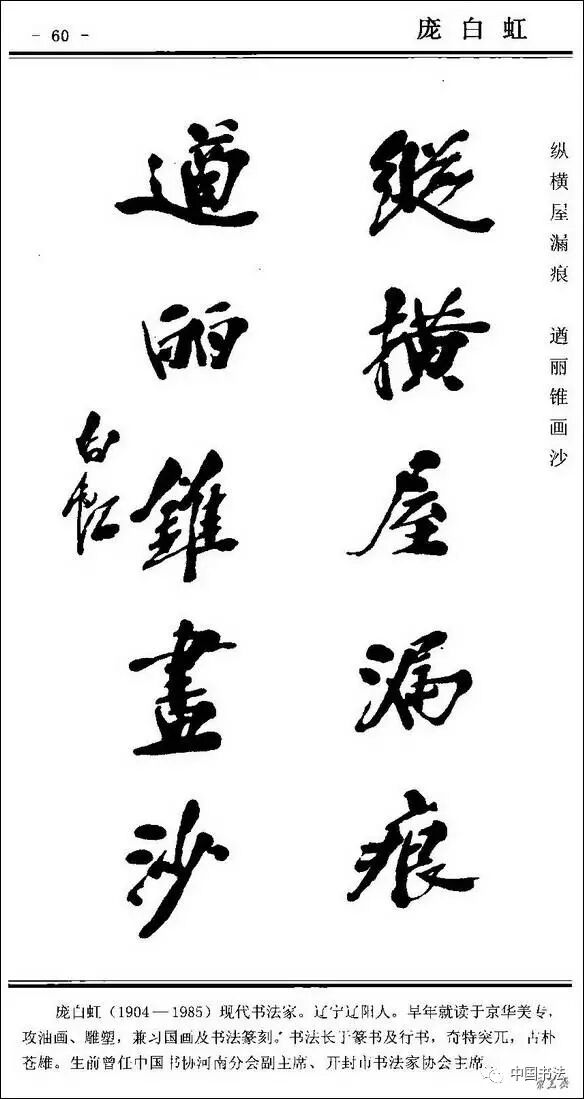 - 60 -
庞白虹
纵横屋漏痕 遒丽锥画沙
縱橫屋漏痕
遒丽錐畫沙
白虹
庞白虹(1904—1985)现代书法家。辽宁辽阳人。早年就读于京华美专,
攻油画、雕塑,兼习国画及书法篆刻。书法长于篆书及行书,奇特突兀,古朴
苍雄。生前曾任中国书协河南分会副主席、开封市书法家协会主席。
中国书法